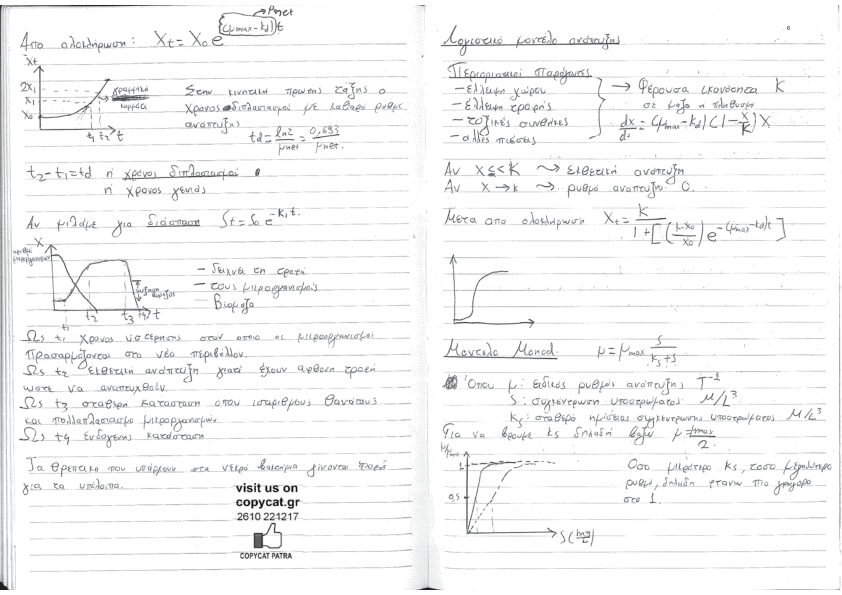 μnet
Απο ολοκλήρωση: Xt = X₀e^(μmax-kd)t
Xt
2X₁
X₁
X₀
t₁ t₂ t
γραμμικό
κομμάτι
Στην κινητική πρώτης τάξης ο
χρονος διπλασιασμού με καθαρό ρυθμό
ανάπτυξης
td = ln2/μnet = 0,693/μnet.
t₂-t₁=td ή χρονος διπλασιασμού
ή χρονος γενιάς
Αν μιλάμε για διάσπαση St = S₀ e^-k₁t.
X
αριθμό
μικροοργανισμών
t₁ t₂ t₃ t₄ t
- δείχνει τη τροφή
- τους μικροοργανισμούς
- βιομάζα
Ως t₁ χρονος υστέρησης στον οποιο οι μικροοργανισμοί
προσαρμόζονται στο νέο περιβάλλον.
Ως t₂ εκθετική ανάπτυξη γιατί έχουν αφθονη τροφή
ωστε να αναπτυχθούν.
Ως t₃ σταθερή κατασταση οπου ισαριθμους θανάτους
και πολλαπλασιασμο μικροοργανισμών
Ως t₄ ενδογενής κατάσταση
Τα θρεπτικα που υπάρχουν στα νεκρά βακτήρια γίνονται τροφή
για τα υπόλοιπα.
visit us on
copycat.gr
2610 221217
COPYCAT PATRA
Λογιστικό μοντέλο ανάπτυξης
Περιοριστικοί Παράγοντες
- έλλειψη χώρου
- έλλειψη τροφής
- τοξικές συνθήκες
- αλλες πιέσεις
→ Φέρουσα ικανότητα K
σε μαζα ή πληθυσμο
dx/dt = (μmax-kd)(1-X/K)X
Αν X<<K ⇝ εκθετική αναπτυξη
Αν X→k ⇝ ρυθμό αναπτυξης 0.
Μετα απο ολοκλήρωση Xt = K
Μοντελο Monod. μ = μmax S/(ks+S)
Οπου μ: ειδικός ρυθμός ανάπτυξης T^-1
S: συγκέντρωση υποστρώματος M/L³
Ks: σταθερά ημίσειας συγκεντρωσης υποστρώματος M/L³
Για να βρουμε ks δηλαδή βαζω μ = μmax/2.
1
0,5
S(mg/L)
Οσο μικρότερο ks, τοσο μεγαλύτερο
ρυθμό, δηλαδή φτανω πιο γρήγορα
στο 1.